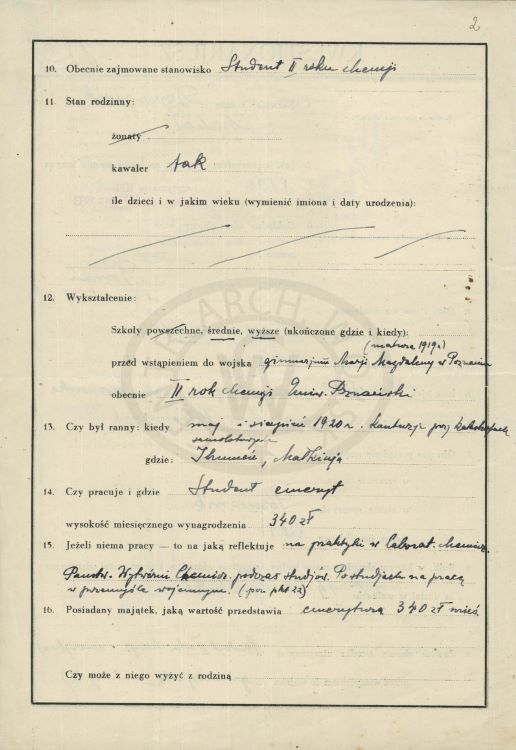 2
10. Obecnie zajmowane stanowisko Student II roku chemji
11. Stan rodzinny:
żonaty
kawaler tak
ile dzieci i w jakim wieku (wymienić imiona i daty urodzenia):
12. Wykształcenie:
Szkoły powszechne, średnie, wyższe (ukończone gdzie i kiedy):
(matura 1919 r)
przed wstąpieniem do wojska gimnazjum Marji Magdaleny w Poznaniu
obecnie II rok chemji Uniw. Poznański
13. Czy był ranny: kiedy maj i sierpień 1920 r. kontuzje przy
gdzie: Małkinja
14. Czy pracuje i gdzie Student emeryt
wysokość miesięcznego wynagrodzenia 340 zł
15. Jeżeli niema pracy — to na jaką reflektuje na praktyki w Laborat. chemicz.
Państw. Wytwórni Chemicz. podczas studjów. Po studjach na pracę
w przemyśle wojennym. (por. pkt 22)
16. Posiadany majątek, jaką wartość przedstawia emerytura 340 zł mies.
Czy może z niego wyżyć z rodziną
ARCH